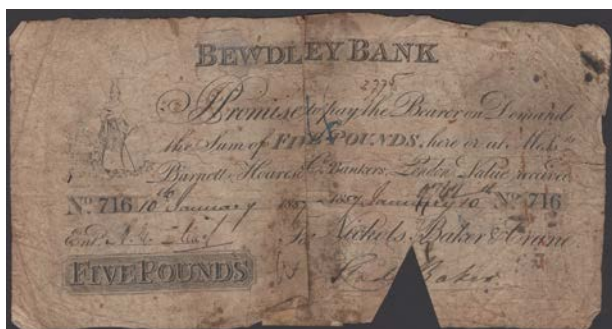 BEWDLEY BANK
2775
I Promise to pay the Bearer on Demand
the Sum of FIVE POUNDS, here or at Mess.rs
Barnett, Hoares & Co. Bankers, London Value received
No. 716 10th January January 10th No. 716
Ent.d For Nickols, Baker & Crane
FIVE POUNDS Baker